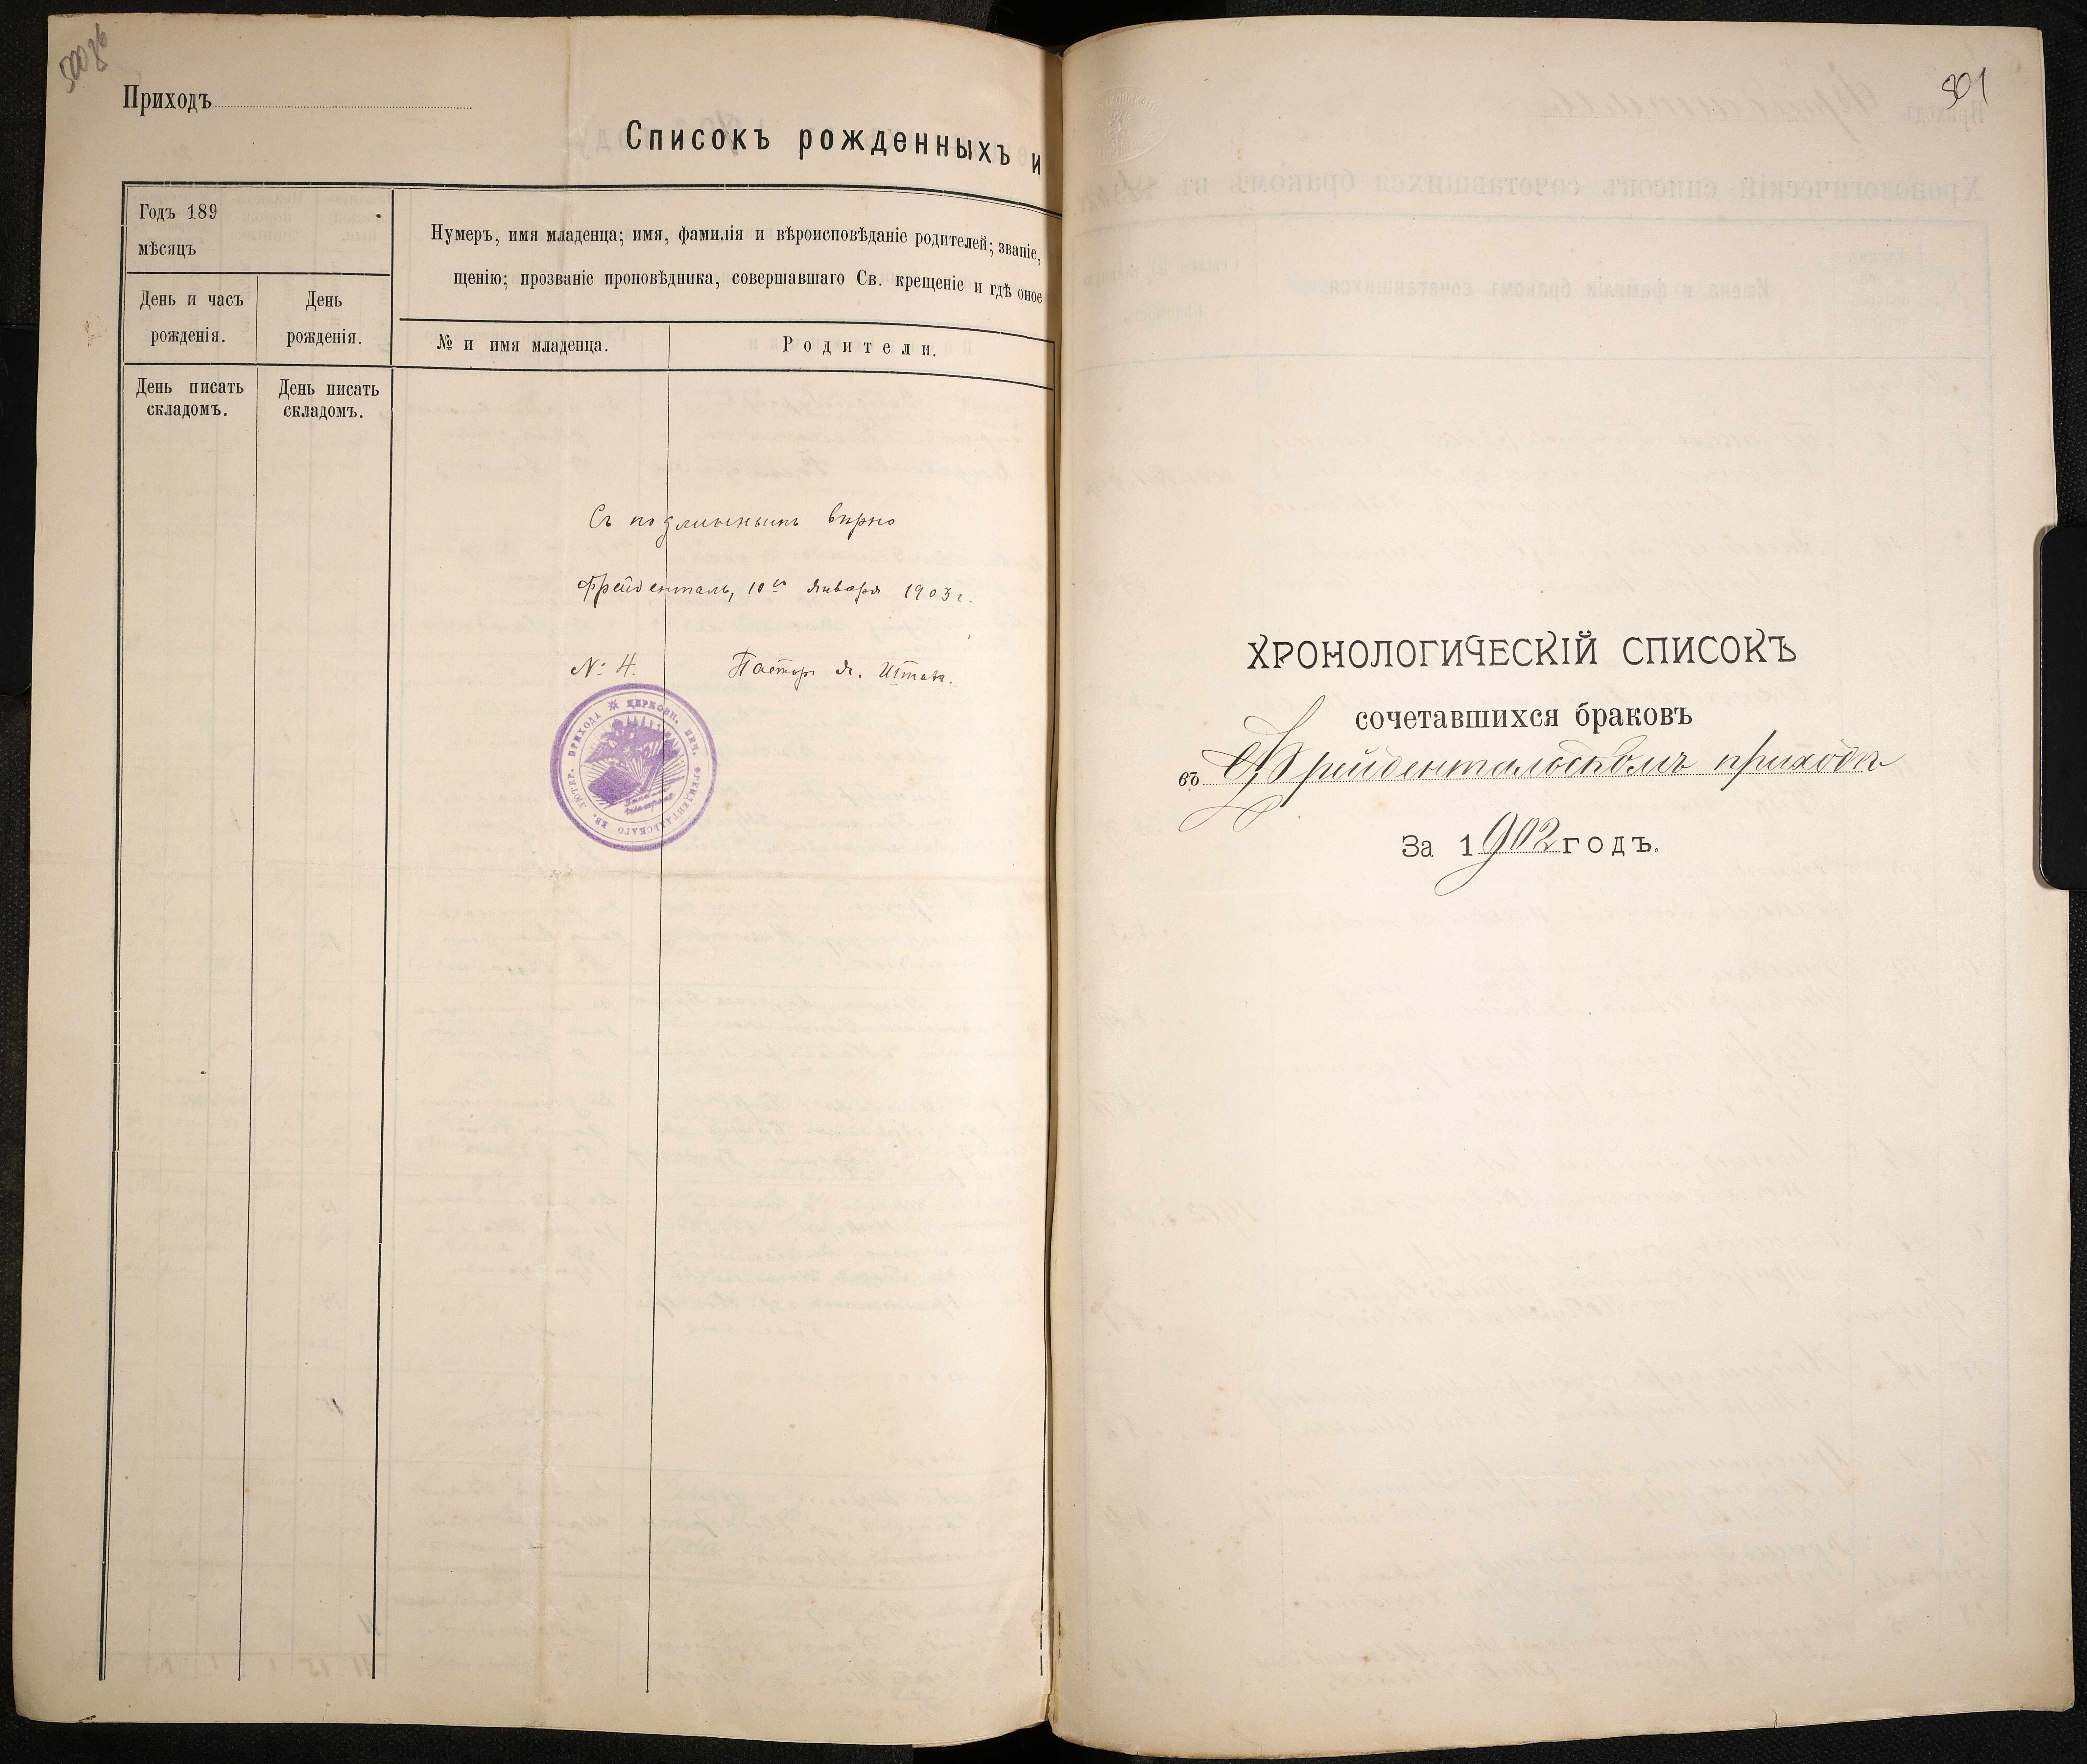 Приходъ
Списокъ рожденныхъ и
Годъ 189
мѣсяцъ
Нумеръ, имя младенца; имя, фамилія и вѣроисповѣданіе родителей; званіе,
щенію; прозваніе проповѣдника, совершавшаго Св. крещеніе и гдѣ оное
День и часъ
рожденія.
День
рожденія.
№ и имя младенца.
Родители.
День писать
складомъ.
День писать
складомъ.
Съ подлиннымъ вѣрно
Фрейденталь, 10го Января 1903 г.
№ 4. Пастор
ЦЕРКОВН. ПЕЧ. ФРЕЙДЕНТАЛЬСКАГО ЕВ. ЛЮТЕР. ПРИХОДА
801
ХРОНОЛОГИЧЕСКІЙ СПИСОКЪ
сочетавшихся браковъ
въ Фрейдентальскомъ приходѣ
За 1902 годъ.